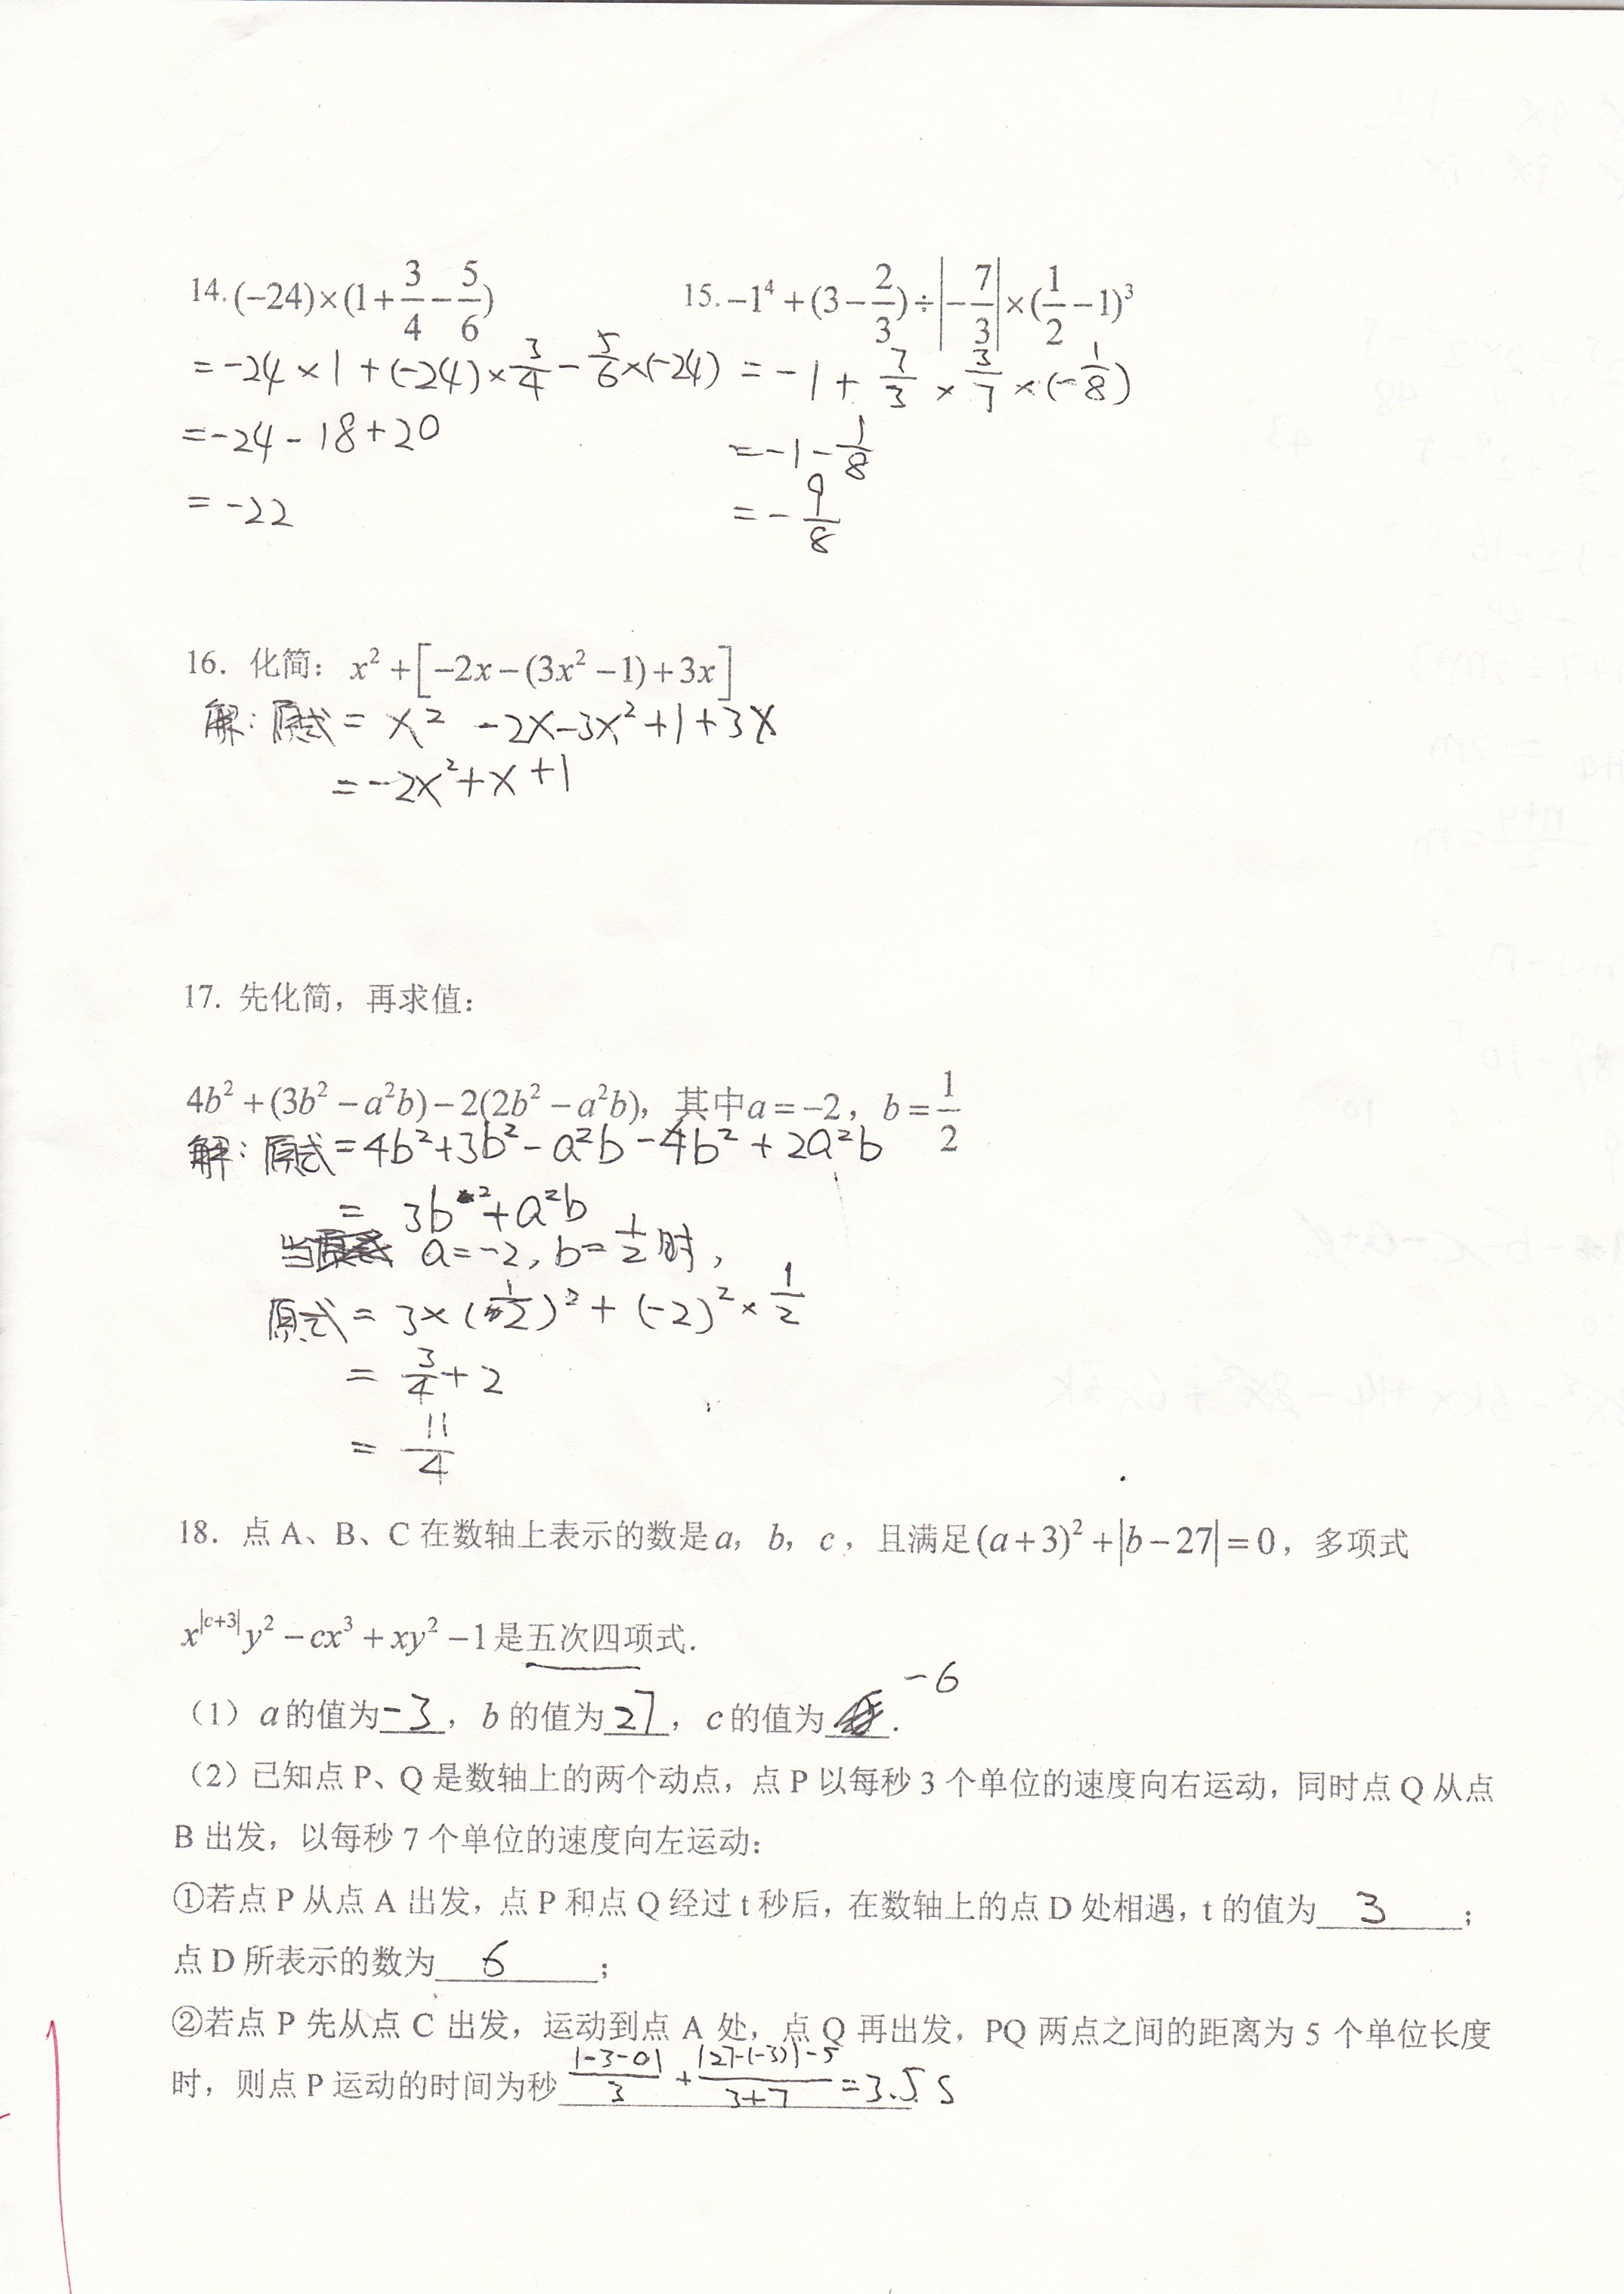 14. (−24)×(1+3/4−5/6)    15. −1⁴+(3−2/3)÷|−7/3|×(1/2−1)³
=-24×1+(-24)×3/4-5/6×(-24)    =-1+7/3×3/7×(-1/8)
=-24-18+20    =-1-1/8
=-22    =-9/8
16. 化简：x²+[−2x−(3x²−1)+3x]
解：原式=x²-2x-3x²+1+3x
=-2x²+x+1
17. 先化简，再求值：
4b²+(3b²−a²b)−2(2b²−a²b)，其中a=−2，b=1/2
解：原式=4b²+3b²-a²b-4b²+2a²b
=3b²+a²b
当a=-2,b=1/2时,
原式=3×(1/2)²+(-2)²×1/2
=3/4+2
=11/4
18. 点 A、B、C 在数轴上表示的数是a，b，c，且满足(a+3)²+|b−27|=0，多项式
x^|c+3|y²−cx³+xy²−1是五次四项式.
（1）a的值为-3，b的值为27，c的值为-6.
（2）已知点 P、Q 是数轴上的两个动点，点 P 以每秒 3 个单位的速度向右运动，同时点 Q 从点
B 出发，以每秒 7 个单位的速度向左运动：
①若点 P 从点 A 出发，点 P 和点 Q 经过 t 秒后，在数轴上的点 D 处相遇，t 的值为 3；
点 D 所表示的数为 6；
②若点 P 先从点 C 出发，运动到点 A 处，点 Q 再出发，PQ 两点之间的距离为 5 个单位长度
时，则点 P 运动的时间为秒 |-3-0|/3+(|27-(-3)|-5)/(3+7)=3.5s